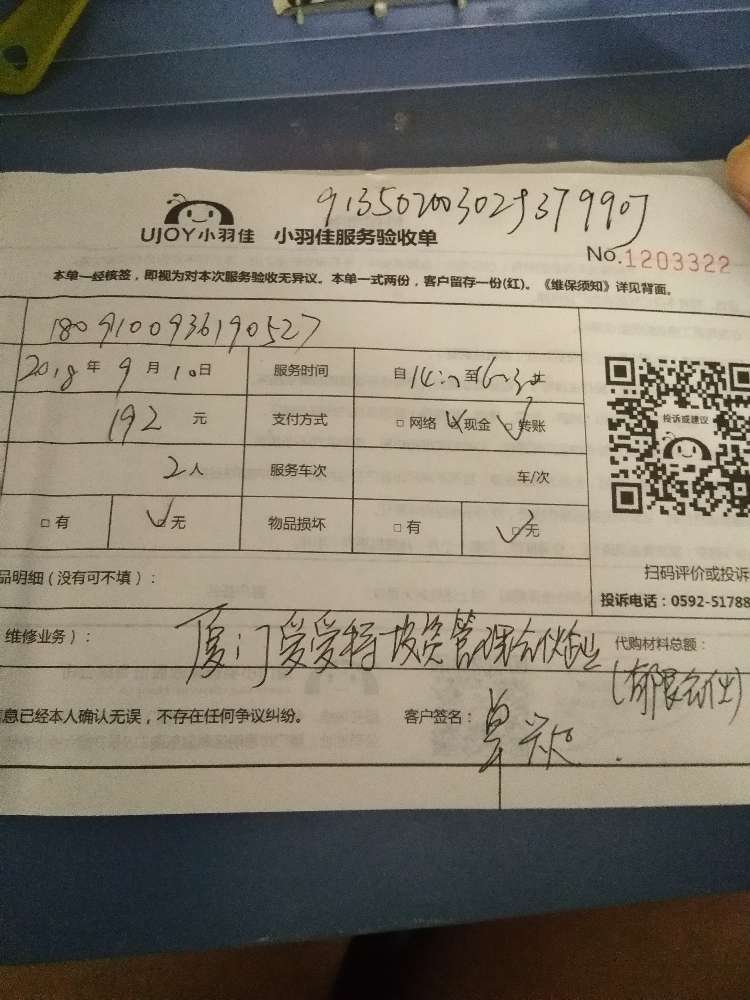 UJOY小羽佳 小羽佳服务验收单
No.1203322
本单一经核签，即视为对本次服务验收无异议。本单一式两份，客户留存一份(红)。《维保须知》详见背面。
1809100936190527
2018年9月10日 服务时间 自14:00至16:30止
192元 支付方式 □网络 □现金 □转账
2人 服务车次 车/次
□有 □无 物品损坏 □有 □无
投诉或建议
品明细（没有可不填）：
扫码评价或投诉
投诉电话：0592-51788
维修业务）：
厦门爱特投资管理合伙企业
代购材料总额：
(有限合伙)
信息已经本人确认无误，不存在任何争议纠纷。 客户签名：